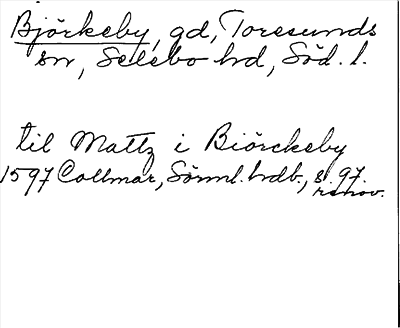 Björkeby, gd, Toresunds
sn, Selebo hd, Söd. l.
til Mattz i Biörckeby
1597 Collmar, Sörml. hdb., s. 97.
renov.